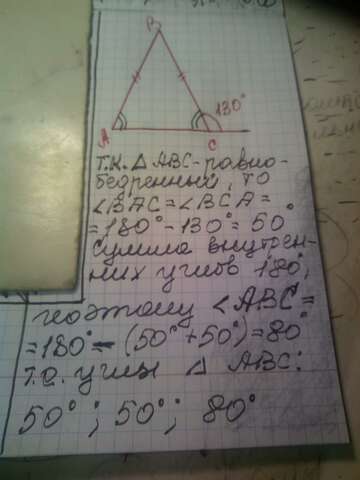 B
130°
A
C
Т.К. Δ ABC - равно-
бедренный, то
∠BAC = ∠BCA =
= 180° - 130° = 50°
Сумма внутрен-
них углов 180°,
поэтому ∠ABC =
= 180° - (50° + 50°) = 80°
Т.О. углы Δ ABC:
50° ; 50° ; 80°